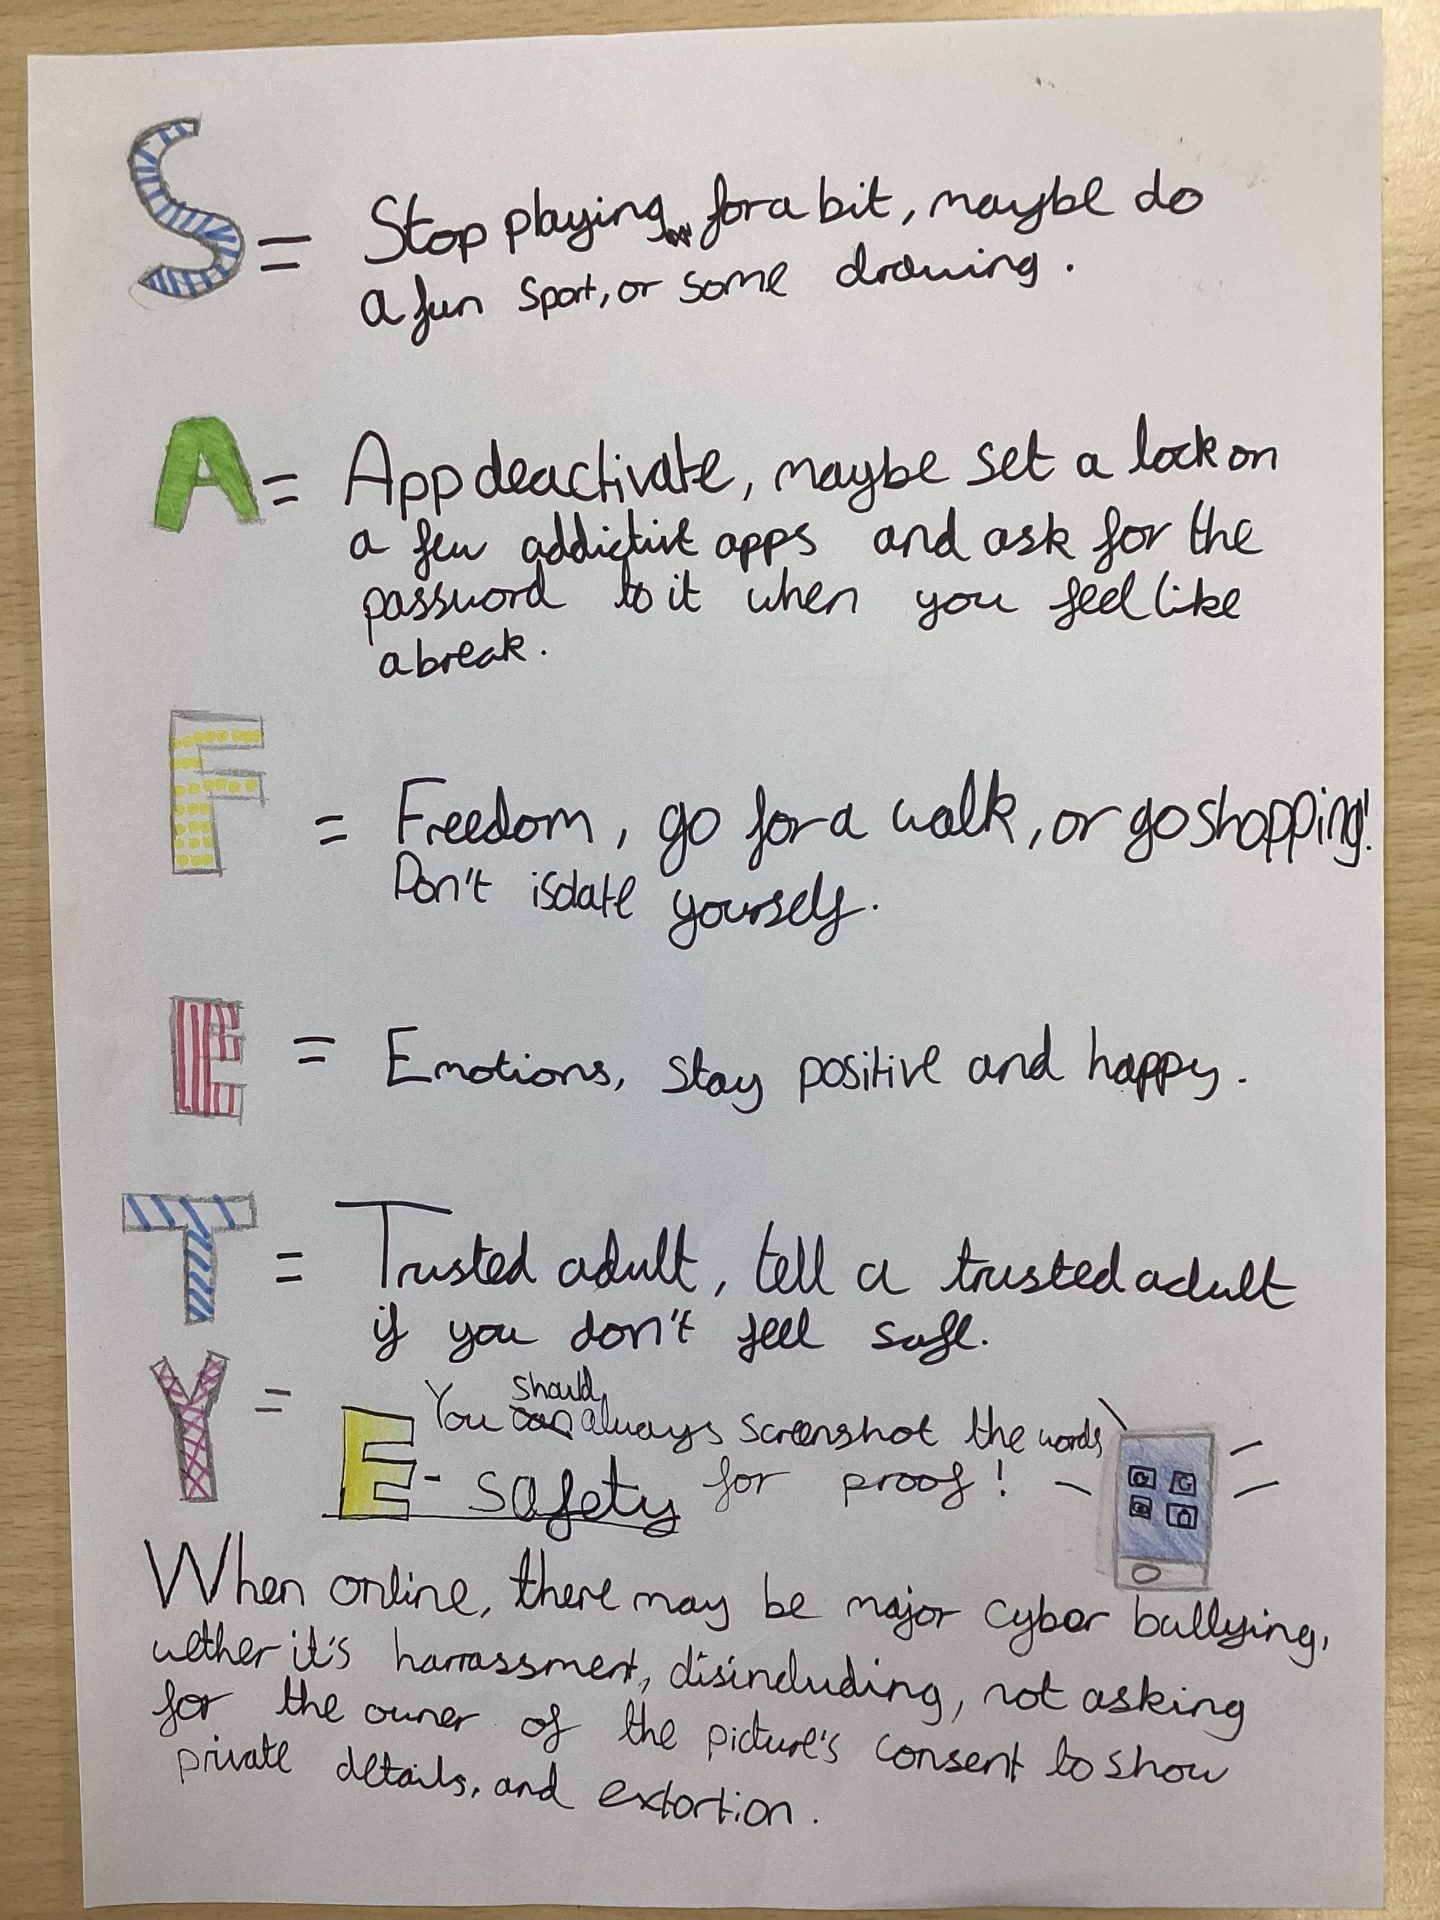 S = Stop playing for a bit, maybe do
a fun sport, or some drawing.
A = App deactivate, maybe set a lock on
a few addictive apps and ask for the
password to it when you feel like
a break.
F = Freedom, go for a walk, or go shopping!
Don't isolate yourself.
E = Emotions, stay positive and happy.
T = Trusted adult, tell a trusted adult
if you don't feel safe.
Y = You should always screenshot the words
for proof!
E-safety
When online, there may be major cyber bullying,
wether it's harrassment, disincluding, not asking
for the owner of the picture's consent to show
private details, and extortion.